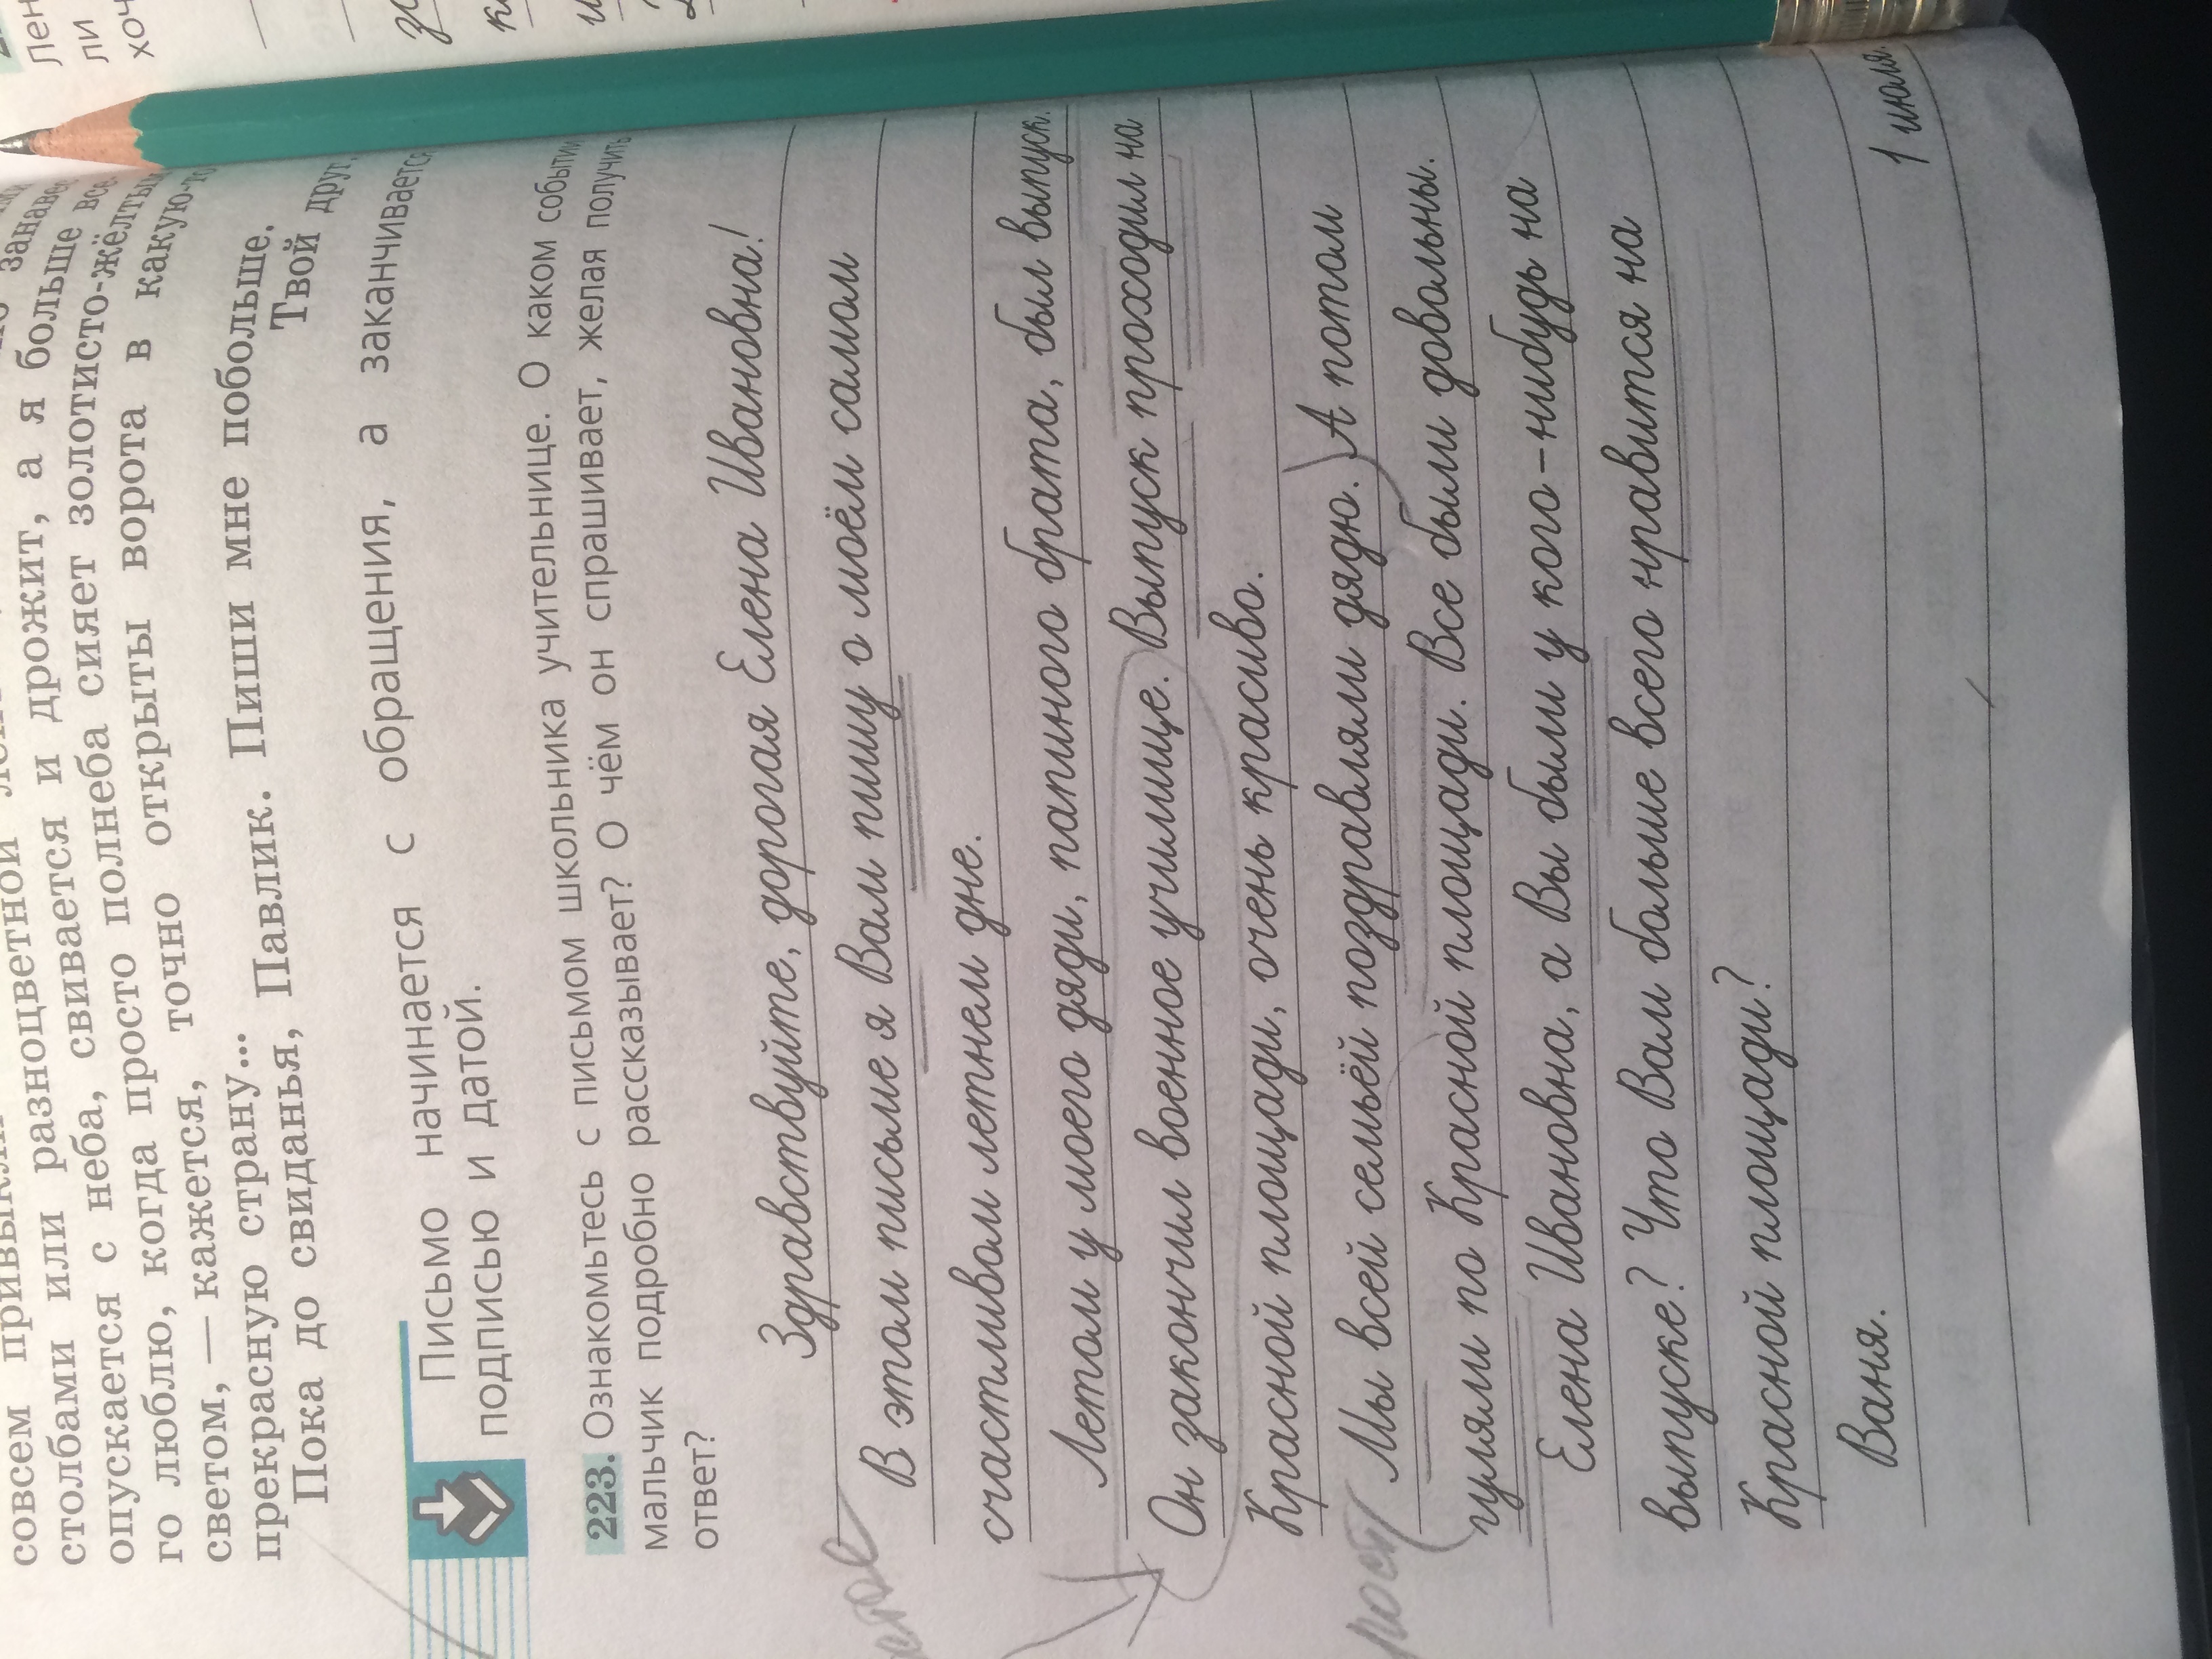 совсем
столбами или разноцветной
опускается с неба, свивается и дрожит, а я больше
го люблю, когда просто полнеба сияет золотисто-жёлтым
светом, — кажется, точно открыты ворота в какую-то
прекрасную страну...
Пока до свиданья, Павлик. Пиши мне побольше.
Твой друг,
Письмо начинается с обращения, а заканчивается
подписью и датой.
223. Ознакомьтесь с письмом школьника учительнице. О каком событии
мальчик подробно рассказывает? О чём он спрашивает, желая получить
ответ?
Здравствуйте, дорогая Елена Ивановна!
В этом письме я Вам пишу о моём самом
счастливом летнем дне.
Летом у моего дяди, папиного брата, был выпуск.
Он закончил военное училище. Выпуск проходил на
Красной площади, очень красиво.
Мы всей семьёй поздравляли дядю. А потом
гуляли по Красной площади. Все были довольны.
Елена Ивановна, а Вы были у кого-нибудь на
выпуске? Что Вам больше всего нравится на
Красной площади?
Ваня.
1 июля.
Лен
ли
хоч